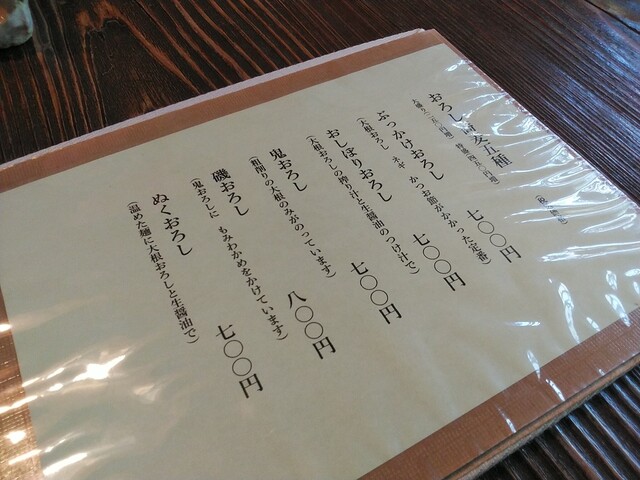 おろし蕎麦五種
ぶっかけおろし 七〇〇円
(大根おろし ネギ かつお節がかかった定番)
おしぼりおろし 七〇〇円
(大根おろしの搾り汁と生醤油のつけ汁で)
鬼おろし 七〇〇円
(粗削りの大根のみがのっています)
磯おろし 八〇〇円
(鬼おろしに もみわかめをかけています)
ぬくおろし 七〇〇円
(温めた麺に大根おろしと生醤油で)